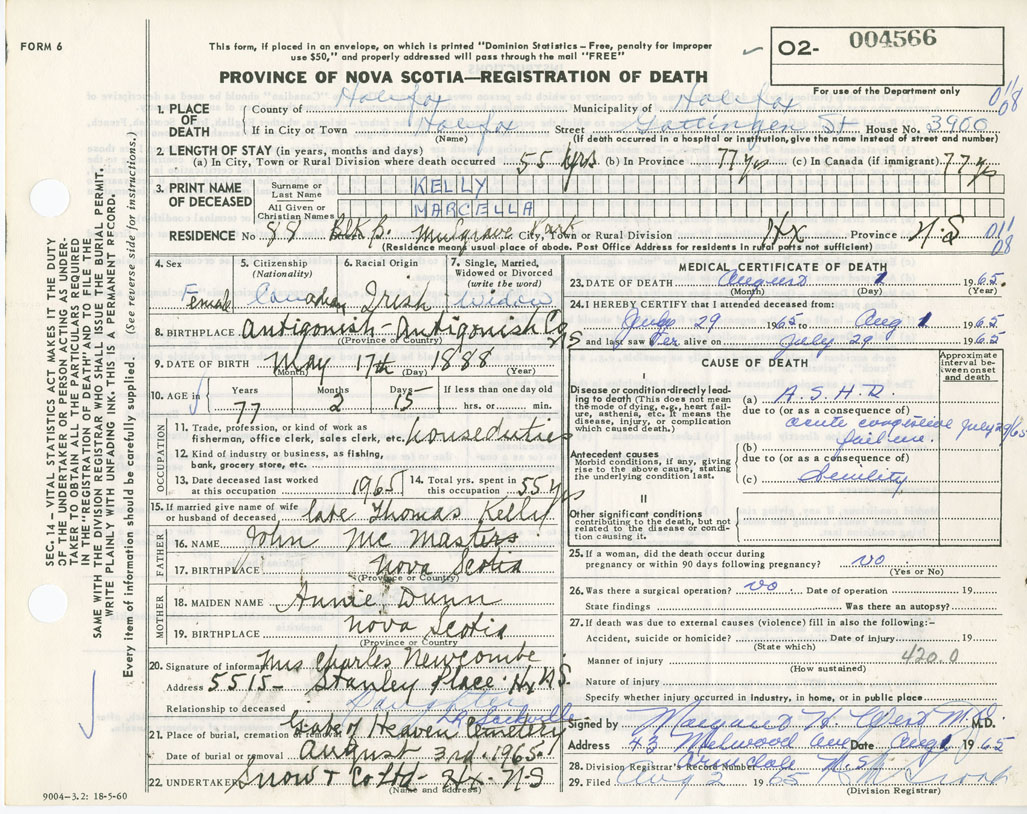 FORM 6
This form, if placed in an envelope, on which is printed "Dominion Statistics – Free, penalty for improper
use $50," and properly addressed will pass through the mail "FREE"
PROVINCE OF NOVA SCOTIA—REGISTRATION OF DEATH
O2- 004566
For use of the Department only
1. PLACE OF DEATH
County of Halifax Municipality of Halifax
If in City or Town Halifax Street Gottingen St House No. 3900
(Name) (If death occurred in a hospital or institution, give the name instead of street and number)
2. LENGTH OF STAY (in years, months and days)
(a) In City, Town or Rural Division where death occurred 55 yrs (b) In Province 77 yrs (c) In Canada (if immigrant) 77 yrs
3. PRINT NAME OF DECEASED
Surname or Last Name KELLY
All Given or Christian Names MARCELLA
RESIDENCE No 88 Blk B. Mulgrave Park City, Town or Rural Division Hx Province N.S
(Residence means usual place of abode. Post Office Address for residents in rural parts not sufficient)
01/08
4. Sex Female
5. Citizenship (Nationality) Canadian
6. Racial Origin Irish
7. Single, Married, Widowed or Divorced (write the word) Widow
8. BIRTHPLACE Antigonish - Antigonish Co NS
(Province or Country)
9. DATE OF BIRTH May 17th 1888
(Month) (Day) (Year)
10. AGE in Years 77 Months 2 Days 15 If less than one day old hrs. or min.
OCCUPATION
11. Trade, profession, or kind of work as
fisherman, office clerk, sales clerk, etc. houseduties
12. Kind of industry or business, as fishing,
bank, grocery store, etc.
13. Date deceased last worked
at this occupation 1965
14. Total yrs. spent in
this occupation 55 yrs
15. If married give name of wife
or husband of deceased late Thomas Kelly
FATHER
16. NAME John Mc Masters
17. BIRTHPLACE Nova Scotia
(Province or Country)
MOTHER
18. MAIDEN NAME Annie Dunn
19. BIRTHPLACE Nova Scotia
(Province or Country)
20. Signature of informant Mrs Charles Newcombe
Address 5515 - Stanley Place Hx N.S.
Relationship to deceased Daughter
21. Place of burial, cremation or removal Gate of Heaven Cemetery Lr Sackville
Date of burial or removal August 3rd 1965.
22. UNDERTAKER Snow & Co Ltd - Hx - N-S
(Name and address)
9004–3.2: 18-5-60
MEDICAL CERTIFICATE OF DEATH
23. DATE OF DEATH August 1 1965.
(Month) (Day) (Year)
24. I HEREBY CERTIFY that I attended deceased from:
July 29 1965 to Aug 1 1965.
and last saw her alive on July 29 1965
CAUSE OF DEATH
Approximate interval between onset and death
I
Disease or condition directly leading to death (This does not mean the mode of dying, e.g., heart failure, asthenia, etc. It means the disease, injury, or complication which caused death.
(a) A.S.H.D.
due to (or as a consequence of)
acute congestive July 29/65
(b) failure.
Antecedent causes
Morbid conditions, if any, giving rise to the above cause, stating the underlying condition last.
due to (or as a consequence of)
(c) Senility
II
Other significant conditions
contributing to the death, but not related to the disease or condition causing it.
25. If a woman, did the death occur during
pregnancy or within 90 days following pregnancy? no
(Yes or No)
26. Was there a surgical operation? no Date of operation 19
State findings Was there an autopsy?
27. If death was due to external causes (violence) fill in also the following:–
Accident, suicide or homicide? Date of injury 19
(State which)
Manner of injury 420.0
(How sustained)
Nature of injury
Specify whether injury occurred in industry, in home, or in public place
Signed by Margaret M.D.
Address 43 Melwood Ave Date Aug 1 1965
Armdale N.S.
28. Division Registrar's Record Number
29. Filed Aug 2 1965
(Division Registrar)
SEC. 14 – VITAL STATISTICS ACT MAKES IT THE DUTY
OF THE UNDERTAKER OR PERSON ACTING AS UNDER-
TAKER TO OBTAIN ALL THE PARTICULARS REQUIRED
IN THE "REGISTRATION OF DEATH" AND TO FILE THE
SAME WITH THE DIVISION REGISTRAR WHO SHALL ISSUE THE BURIAL PERMIT.
WRITE PLAINLY WITH UNFADING INK. THIS IS A PERMANENT RECORD.
Every item of information should be carefully supplied. (See reverse side for instructions.)